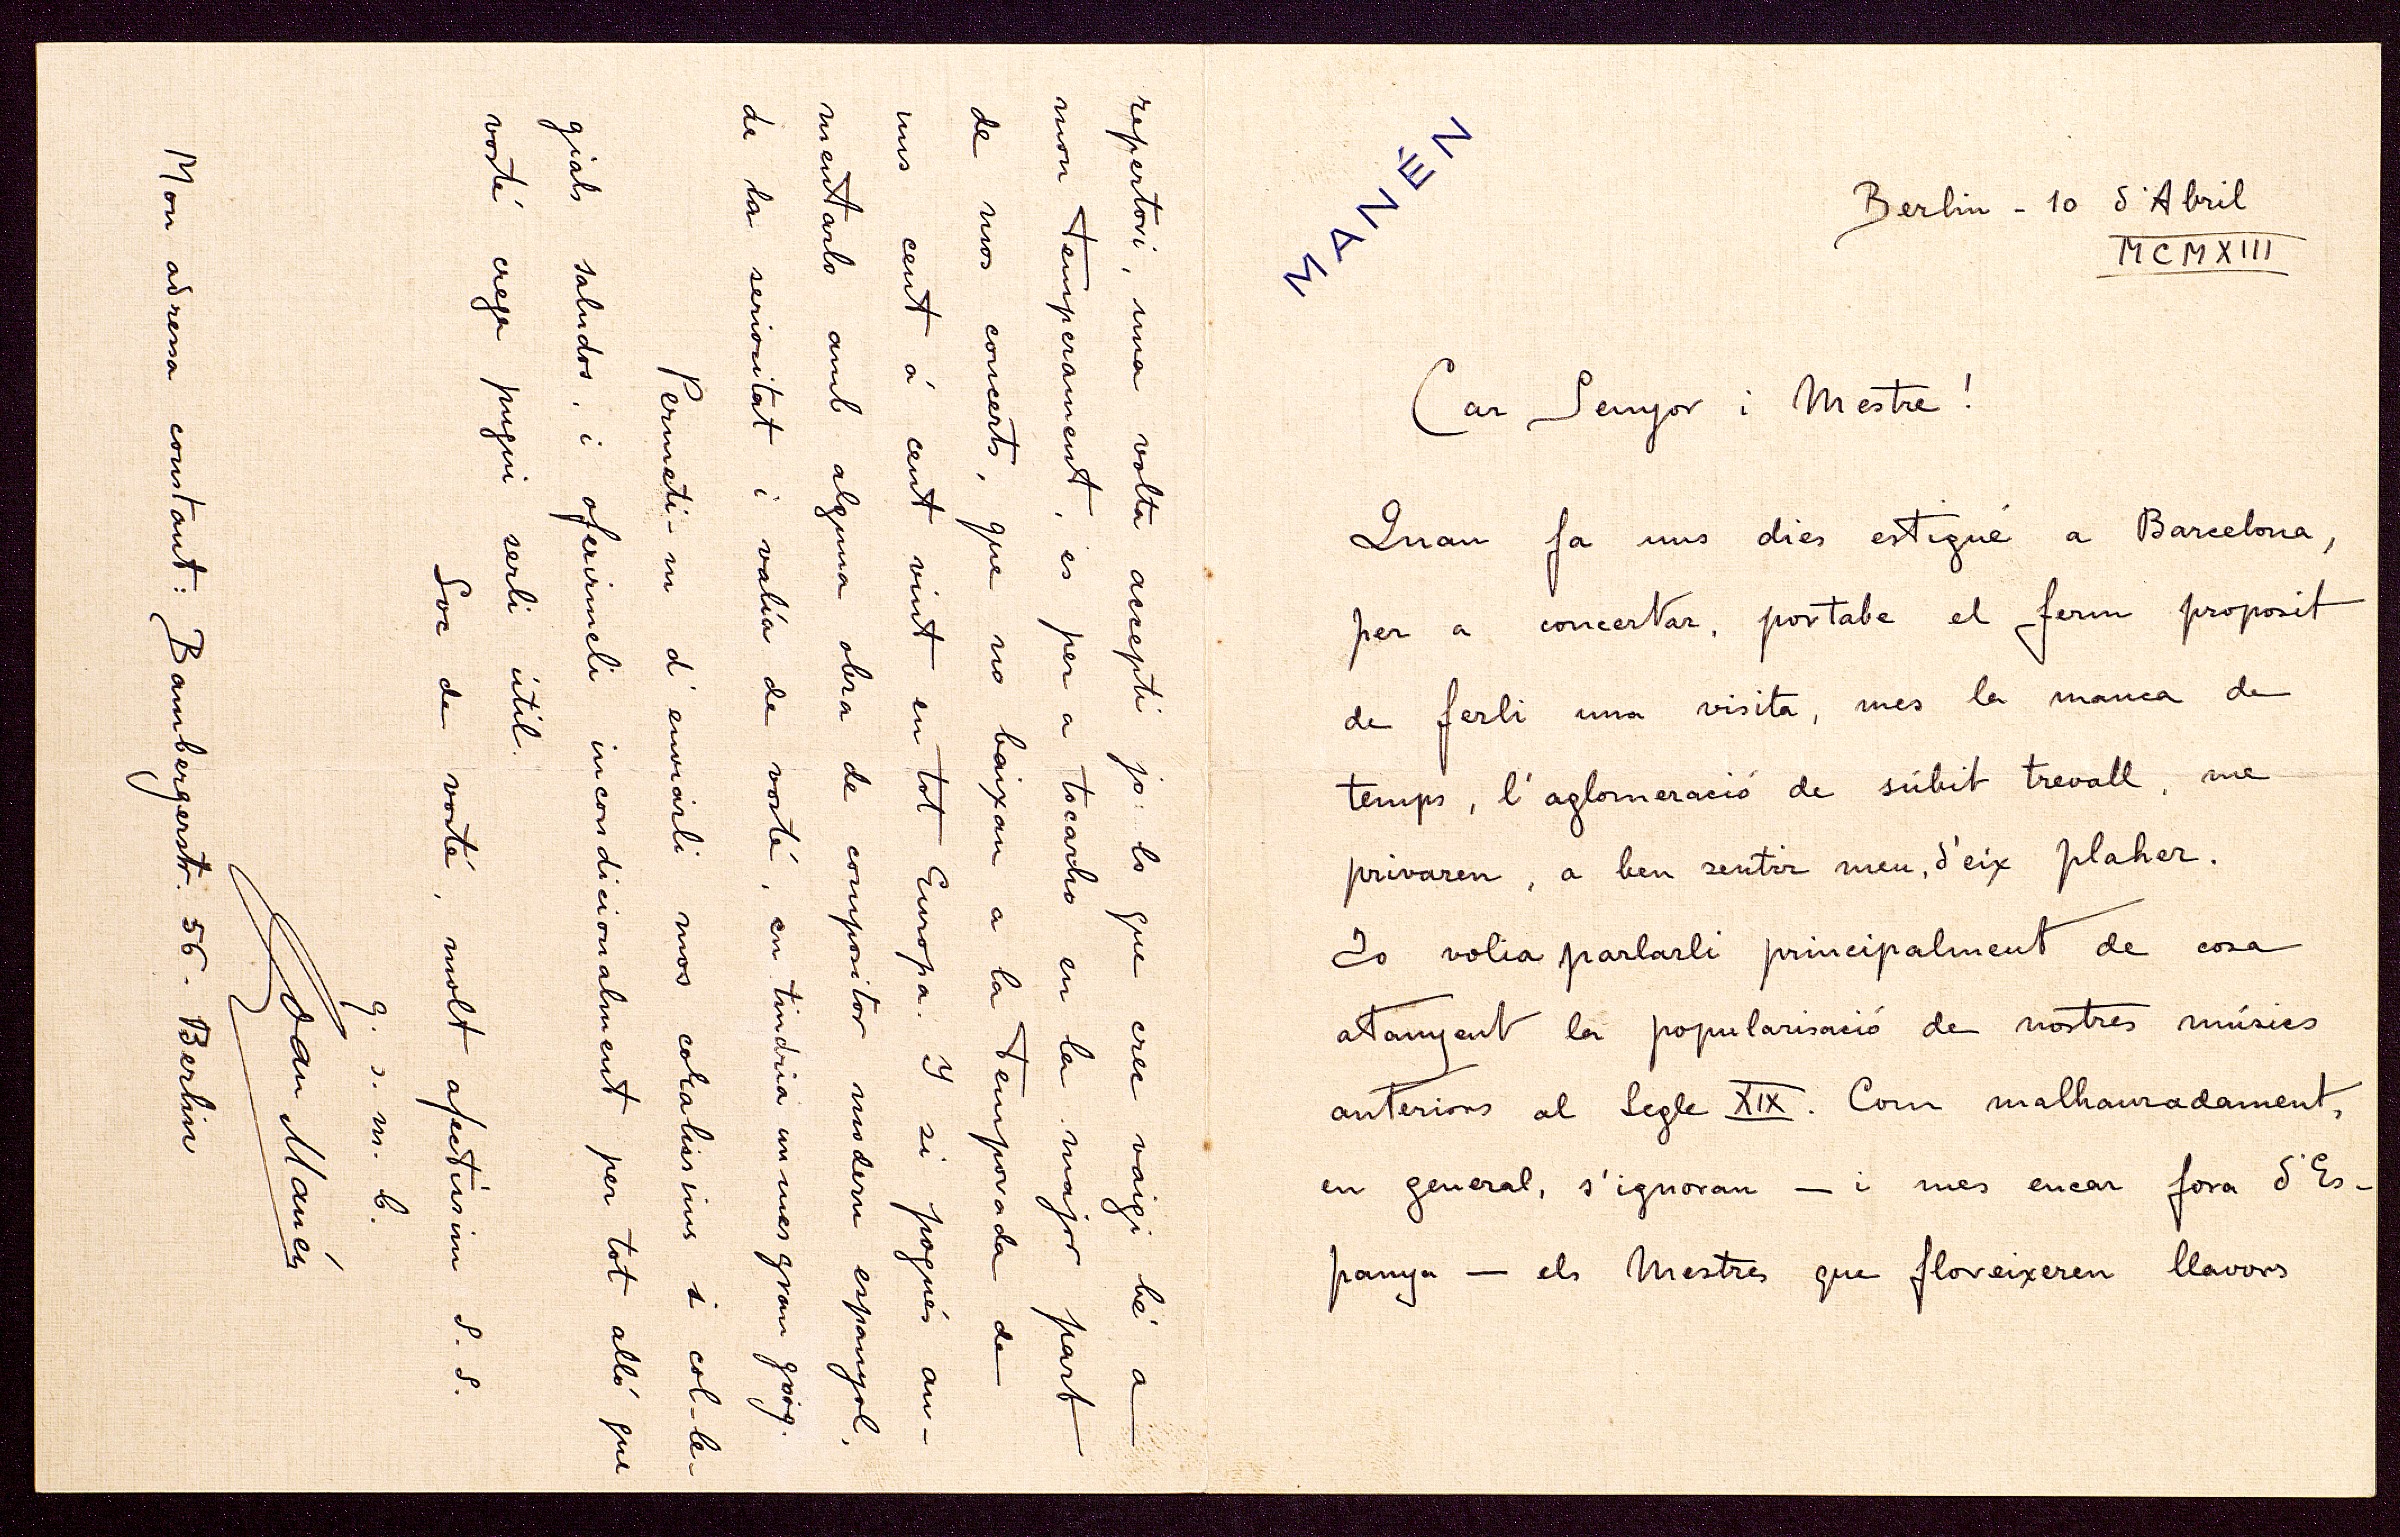 MANÉN
Berlin - 10 d'Abril
MCMXIII
Car Senyor i Mestre!
Quan fa uns dies estigué a Barcelona,
per a concertar, portabe el ferm proposit
de ferli una visita, mes la manca de
temps, l'aglomeració de súbit trevall, me
privaren, a ben sentir meu, d'eix plaher.
Jo volia parlarli principalment de cosa
atanyent la popularisació de nostres músics
anteriors al Segle XIX. Com malhauradament,
en general, s'ignoran — i mes encar fora d'Es-
panya — els Mestres que floreixeren llavors
repertori, una volta accepti jo lo que crec vaigi bé a
mon temperament, es per a tocarho en la major part
de mos concerts, que no baixan a la temporada de
uns cent á cent vint en tot Europa. Y si pogués au-
mentarlo amb alguna obra de compositor modern espanyol,
de la seriositat i valía de vosté, en tindria un mes gran goig.
Permeti-m d'enviarli mos coralissims i col-le-
gials saludos, i oferirmeli incondicionalment per tot alló que
vosté crega pugui serli útil.
Soc de vosté, molt afectissim S. S.
q. s. m. b.
Joan Manén
Mon adressa constant: Bambergerstr. 56 - Berlin